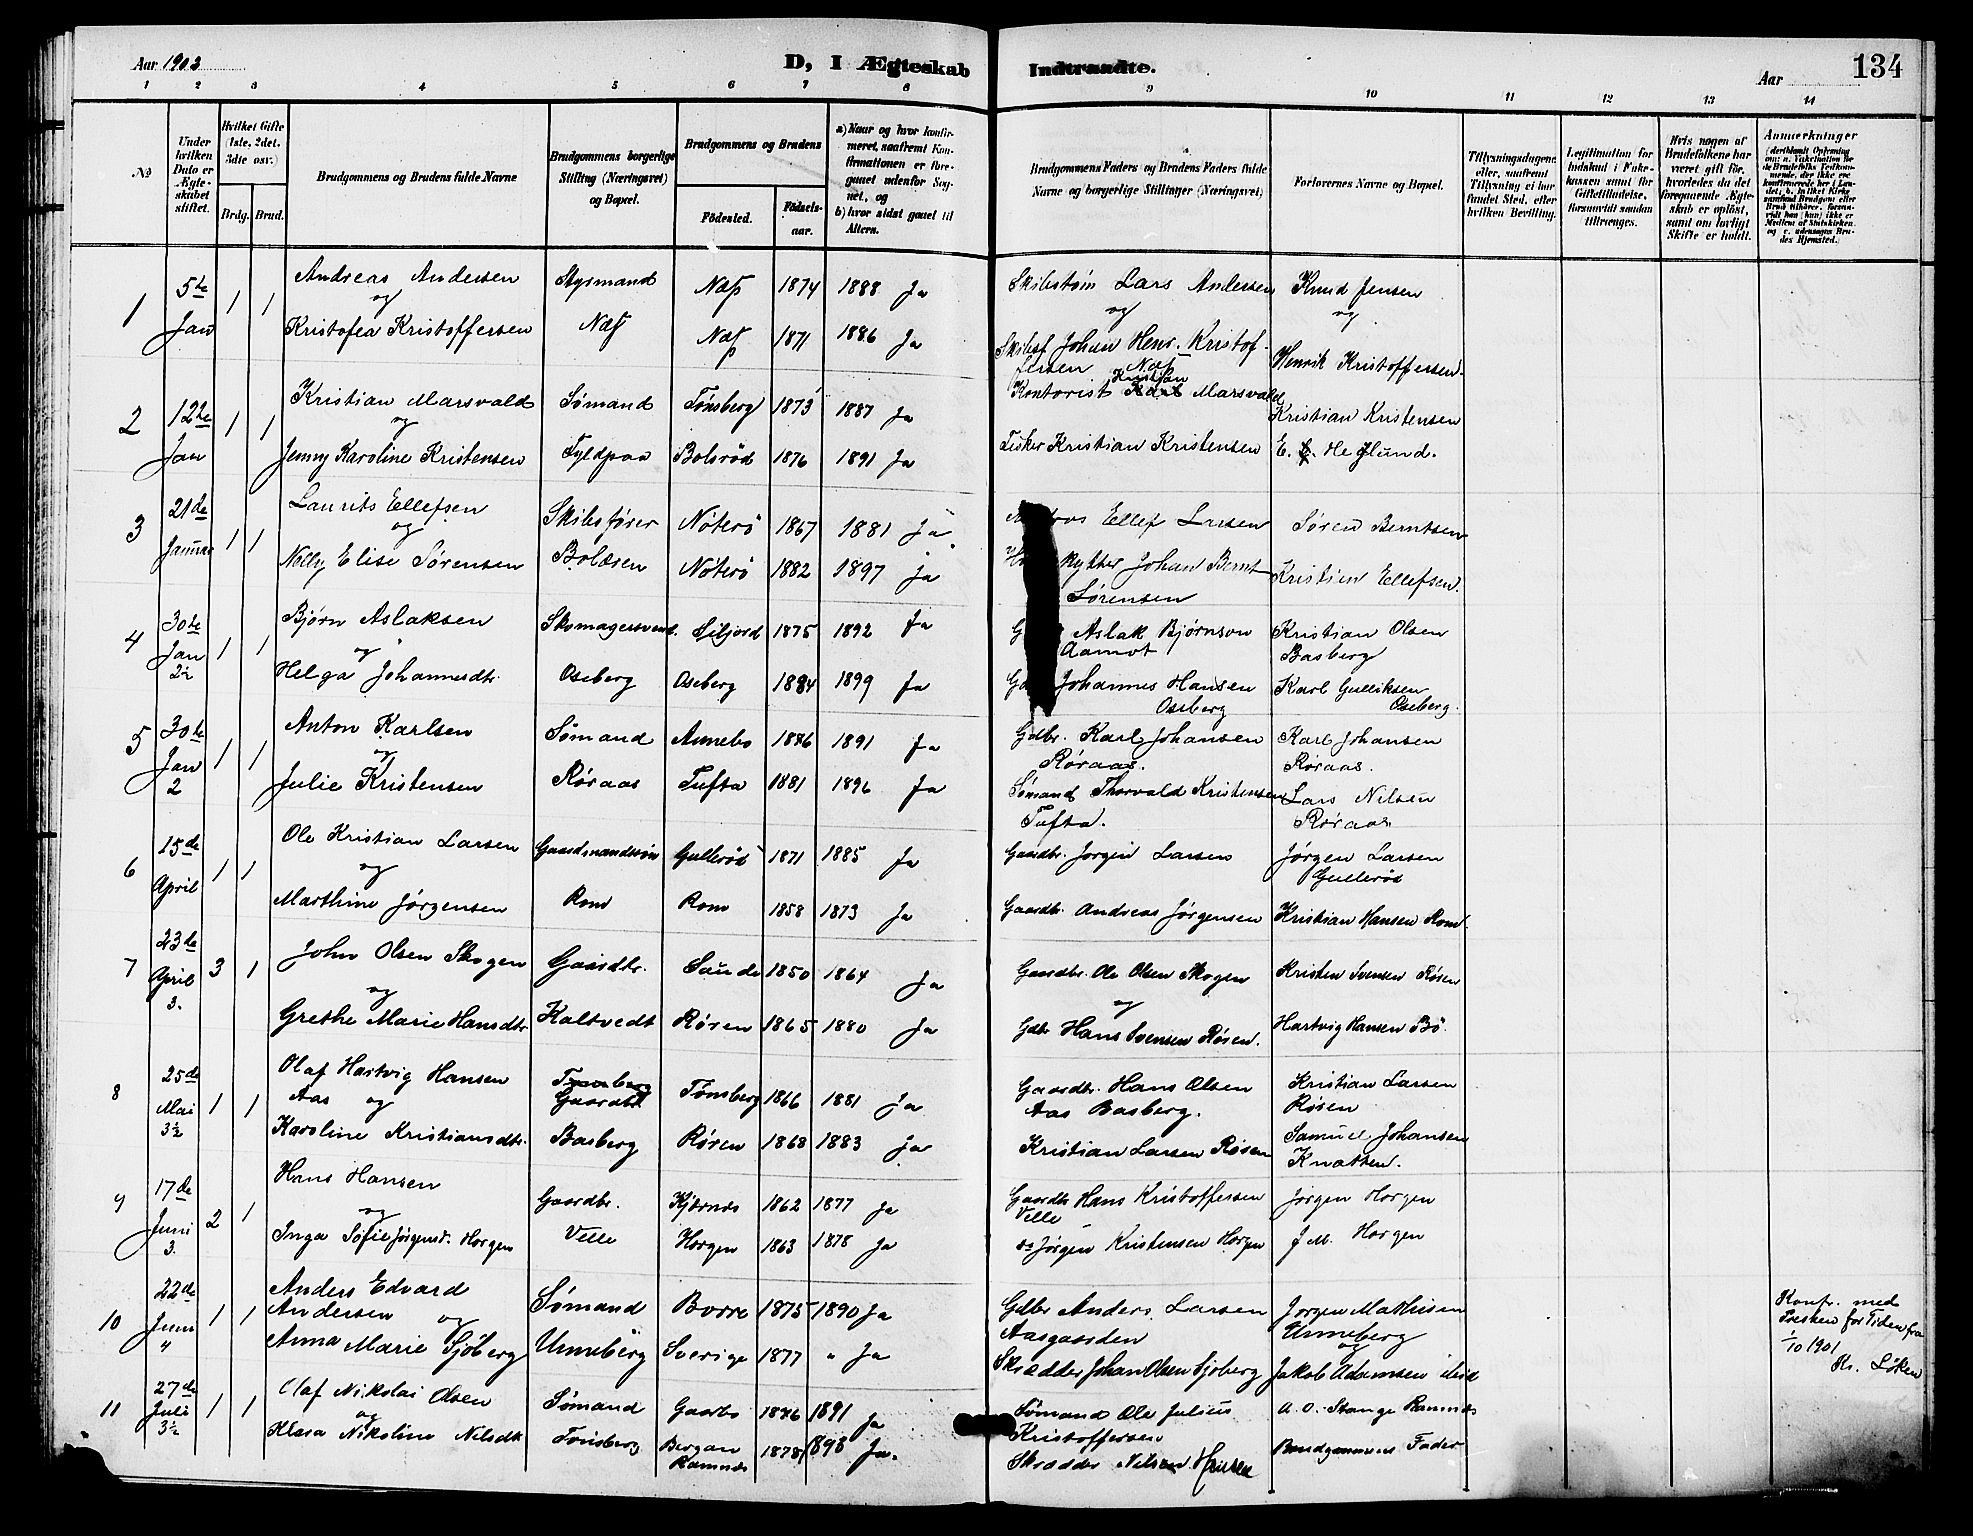 Aar 1903
D, I Ægteskab Indtraadte.
Aar
134
1 2 3 4 5 6 7 8 9 10 11 12 13 14
No
Under hvilken Dato er Ægteskabet stiftet.
Hvilket Gifte (1ste, 2det, 3dte osv.)
Brdg. Brud.
Brudgommens og Brudens fulde Navne
Brudgommens borgerlige Stilling (Næringsvei) og Bopæl.
Brudgommens og Brudens
Födested. Födselsaar.
a) Naar og hvor konfirmeret, saafremt Konfirmationen er foregaaet udenfor Sognet, og
b) hvor sidst gaaet til Alters.
Brudgommens Faders og Brudens Faders fulde Navne og borgerlige Stillinger (Næringsvei)
Forlovernes Navne og Bopæl.
Tillysningsdagene, eller, saafremt Tillysning ei har fundet Sted, efter hvilken Bevilling.
Legitimation for Indskud i Enkekassen samt for Giftetilladelse, forsaavidt saadan tiltrænges.
Hvis nogen af Brudefolkene har været gift för, hvorledes da det foregaaende Ægteskab er oplöst, samt om lovligt Skifte er holdt.
Anmerkninger
1 5te Jan 1 1 Andreas Andersen Styrmand Næs 1874 1888 Ja Skibstøm Lars Andersen Knud Jensen
og og og
Kristofea Kristoffersen Næs Næs 1871 1886 Ja Skibsf Johan Henr. Kristoffersen Næs Henrik Kristoffersen.
2 12te Jan 1 1 Kristian Marsvald Sømand Tønsberg 1873 1887 Ja Kontorist Kristian Marsvald Kristian Kristensen
og
Jenny Karoline Kristensen Fyldpaa Bolsrød 1876 1891 Ja Fisker Kristian Kristensen E. E. Heglund.
3 21de Januar 1 1 Laurits Ellefsen Skibsfører Nøterø 1867 1881 Ja. Ellef Larsen Søren Berntsen
og
Nelly Elise Sørensen Bolæren Nøterø 1882 1897 Ja Johan Bernt Sørensen Kristian Ellefsen.
4 30te Jan 2½ 1 1 Bjørn Aslaksen Skomagersvend. Siljord 1875 1892 Ja Aslak Bjørnson Aamot Kristian Olsen Basberg
og
Helga Johannesdtr. Oseberg Oseberg 1884 1899 Ja Johannes Hansen Oseberg Karl Gulliksen Oseberg.
5 30te Jan 2 1 1 Anton Karlsen Sømand Annebo 1876 1891 Ja Gdbr. Karl Johansen Røraas. Karl Johansen Røraas.
og
Julie Kristensen Røraas Tufta 1881 1896 Ja Sømand Thorvald Kristensen Tufta. Lars Nilsen Røraas
6 15de April 1 1 Ole Kristian Larsen Gaardmandssøn Gullerød 1871 1885 Ja Gaardbr. Jørgen Larsen Jørgen Larsen Gullerød
og
Marthine Jørgensen Rom Rom 1858 1873 Ja Gaardbr. Andreas Jørgensen Kristian Hansen Rom.
7 23de April 3. 3 1 John Olsen Skogen Gaardbr. Saude 1850 1864 Ja Gaardbr. Ole Olsen Skogen Kristen Svensen Røren
og og
Grethe Marie Hansdtr. Kaltvedt Røren 1865 1880 Ja Gdbr Hans Svensen Røren. Hartvig Hansen Bø.
8 25de Mai 3½ 1 1 Olaf Hartvig Hansen Tønsberg Gaardbr Tønsberg 1866 1881 Ja Gaardbr. Hans Olsen Aas Basberg. Kristian Larsen Røren
Aas og
Karoline Kristiansdtr. Basberg Røren 1868 1883 Ja Kristian Larsen Røren Samuel Johansen Knatten.
9 17de Juni 3. 2 1 Hans Hansen Gaardbr. Kjærnes 1862 1877 Ja Gaardbr Hans Kristoffersen Velle Jørgen Horgen
og
Inga Sofie Jørgensd. Horgen Velle Horgen 1863 1878 Ja Jørgen Kristensen Horgen J M. Horgen
10 22de Juni 4 1 1 Anders Edvard Andersen Sømand Borre 1875 1890 Ja Gdbr Anders Larsen Aasgaarden Jørgen Mathisen Unneberg
og og
Anna Marie Sjöberg Unneberg Sverige 1877 " Ja Skrædder Johan Olsen Sjöberg Jakob Adamsen ibid
Konf. med Presken for Tiden fra 1/10 1901 Kr. Løken
11 27de Juli 3½ 1 1 Olaf Nikolai Olsen Sømand Gaarbo 1876 1891 Ja Sømand Ole Julius Kristoffersen A. O. Stange Ramnes
og
Klara Nikoline Nilsdtr Tønsberg Bergan Ramnes 1878 1893 Ja. Skrædder Nilsen Hansen Brudgommens Fader